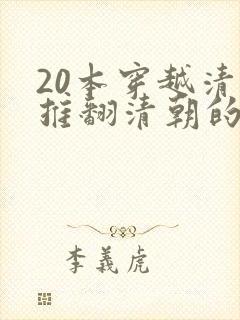 20本穿越清
推翻清朝的
李義虎